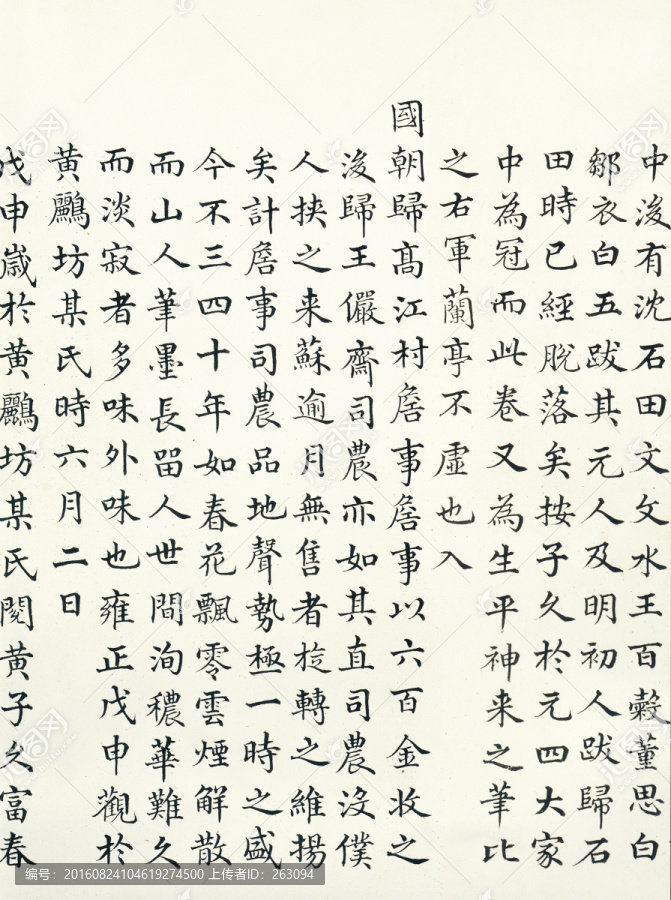 中後有沈石田文文水王百穀董思白
鄒衣白五跋其元人及明初人跋歸石
田時已經脫落矣按子久於元四大家
中為冠而此卷又為生平神来之筆比
之右軍蘭亭不虛也入
國朝歸髙江村詹事詹事以六百金收之
後歸王儼齋司農亦如其直司農沒僕
人挾之来蘇逾月無售者旋轉之維揚
矣計詹事司農品地聲勢極一時之盛
今不三四十年如春花飄零雲煙解散
而山人筆墨長留人世間洵穠華難久
而淡寂者多味外味也雍正戊申觀於
黄鸝坊某氏時六月二日
戊申歲於黄鸝坊某氏閱黄子久富春
编号：20160824104619274500 上传者ID：263094